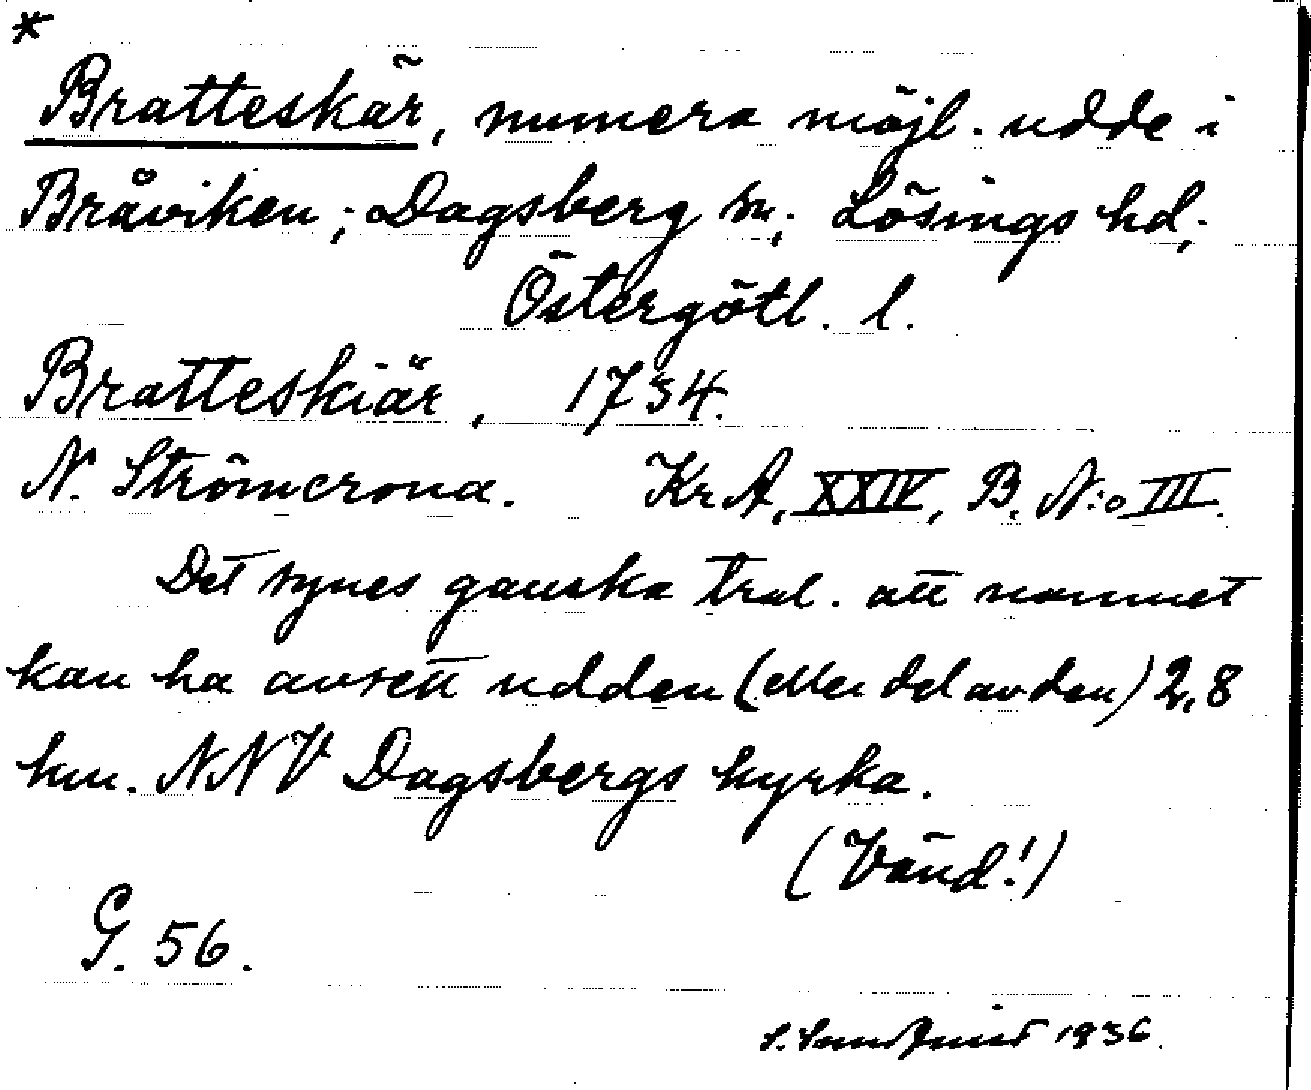 *
Bratteskär, numera möjl. udde i
Bråviken; Dagsberg sn; Lösings hd;
Östergötl. l.
Bratteskiär, 1734.
N. Strömcrona. Kr A, XXIV, B. N:o III.
Det synes ganska trol. att namnet
kan ha avsett udden (eller del av den) 2,8
km. NNV Dagsbergs kyrka.
(Vänd!)
G. 56.
S. Sundquist 1936.